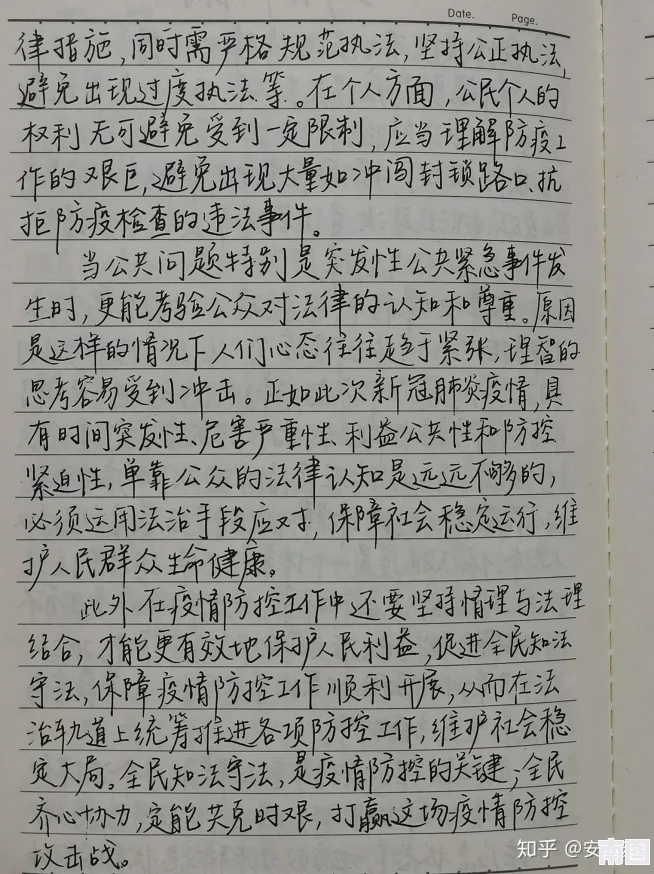 Date. Page.
律措施,同时需严格规范执法,坚持公正执法,
避免出现过度执法等。在个人方面,公民个人的
权利无可避免受到一定限制,应当理解防疫工
作的艰巨,避免出现大量如冲闯封锁路口、抗
拒防疫检查的违法事件。
当公共问题特别是突发性公共紧急事件发
生时,更能考验公众对法律的认知和尊重。原因
是这样的情况下人们心态往往趋于紧张,理智的
思考容易受到冲击。正如此次新冠肺炎疫情,具
有时间突发性、危害严重性、利益公共性和防控
紧迫性,单靠公众的法律认知是远远不够的,
必须运用法治手段应对,保障社会稳定运行,维
护人民群众生命健康。
此外在疫情防控工作中还要坚持情理与法理
结合,才能更有效地保护人民利益,促进全民知法
守法,保障疫情防控工作顺利开展,从而在法
治轨道上统筹推进各项防控工作,维护社会稳
定大局。全民知法守法,是疫情防控的关键;全民
齐心协力,定能共克时艰,打赢这场疫情防控
攻击战。
知乎 @安
南图